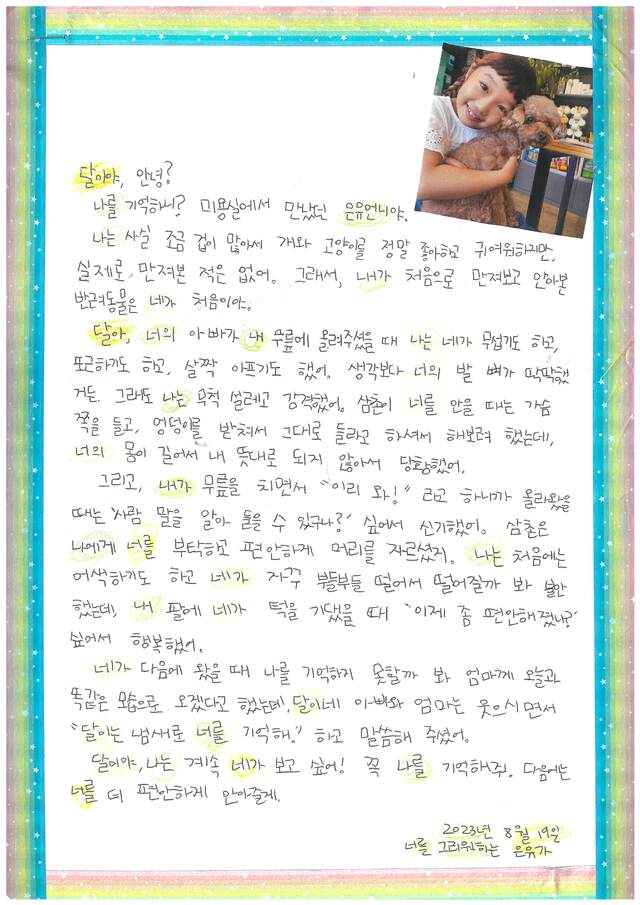 달이야, 안녕?
나를 기억하니? 미용실에서 만났던 은유언니야.
나는 사실 조금 겁이 많아서 개와 고양이를 정말 좋아하고 귀여워하지만,
실제로 만져본 적은 없어. 그래서, 내가 처음으로 만져보고 안아본
반려동물은 네가 처음이야.
달아, 너의 아빠가 내 무릎에 올려주셨을 때 나는 네가 무섭기도 하고,
포근하기도 하고, 살짝 아프기도 했어. 생각보다 너의 발 뼈가 딱딱했
거든. 그래도 나는 무척 설레고 감격했어. 삼촌이 너를 안을 때는 가슴
쪽을 들고, 엉덩이를 받쳐서 그대로 들라고 하셔서 해보려 했는데,
너의 몸이 길어서 내 뜻대로 되지 않아서 당황했어.
그리고, 내가 무릎을 치면서 “이리 와!” 라고 하니까 올라왔을
때는 ‘사람 말을 알아 들을 수 있구나?’ 싶어서 신기했어. 삼촌은
나에게 너를 부탁하고 편안하게 머리를 자르셨지. 나는 처음에는
어색하기도 하고 네가 자꾸 부들부들 떨어서 떨어질까 봐 불안
했는데, 내 팔에 네가 턱을 기댔을 때 ‘이제 좀 편안해졌나?’
싶어서 행복했어.
네가 다음에 왔을 때 나를 기억하지 못할까 봐 엄마께 오늘과
똑같은 모습으로 오겠다고 했는데, 달이네 아빠와 엄마는 웃으시면서
“달이는 냄새로 너를 기억해.” 하고 말씀해 주셨어.
달이야, 나는 계속 네가 보고 싶어! 꼭 나를 기억해줘. 다음에는
너를 더 편안하게 안아줄게.
2023년 8월 19일
너를 그리워하는 은유가